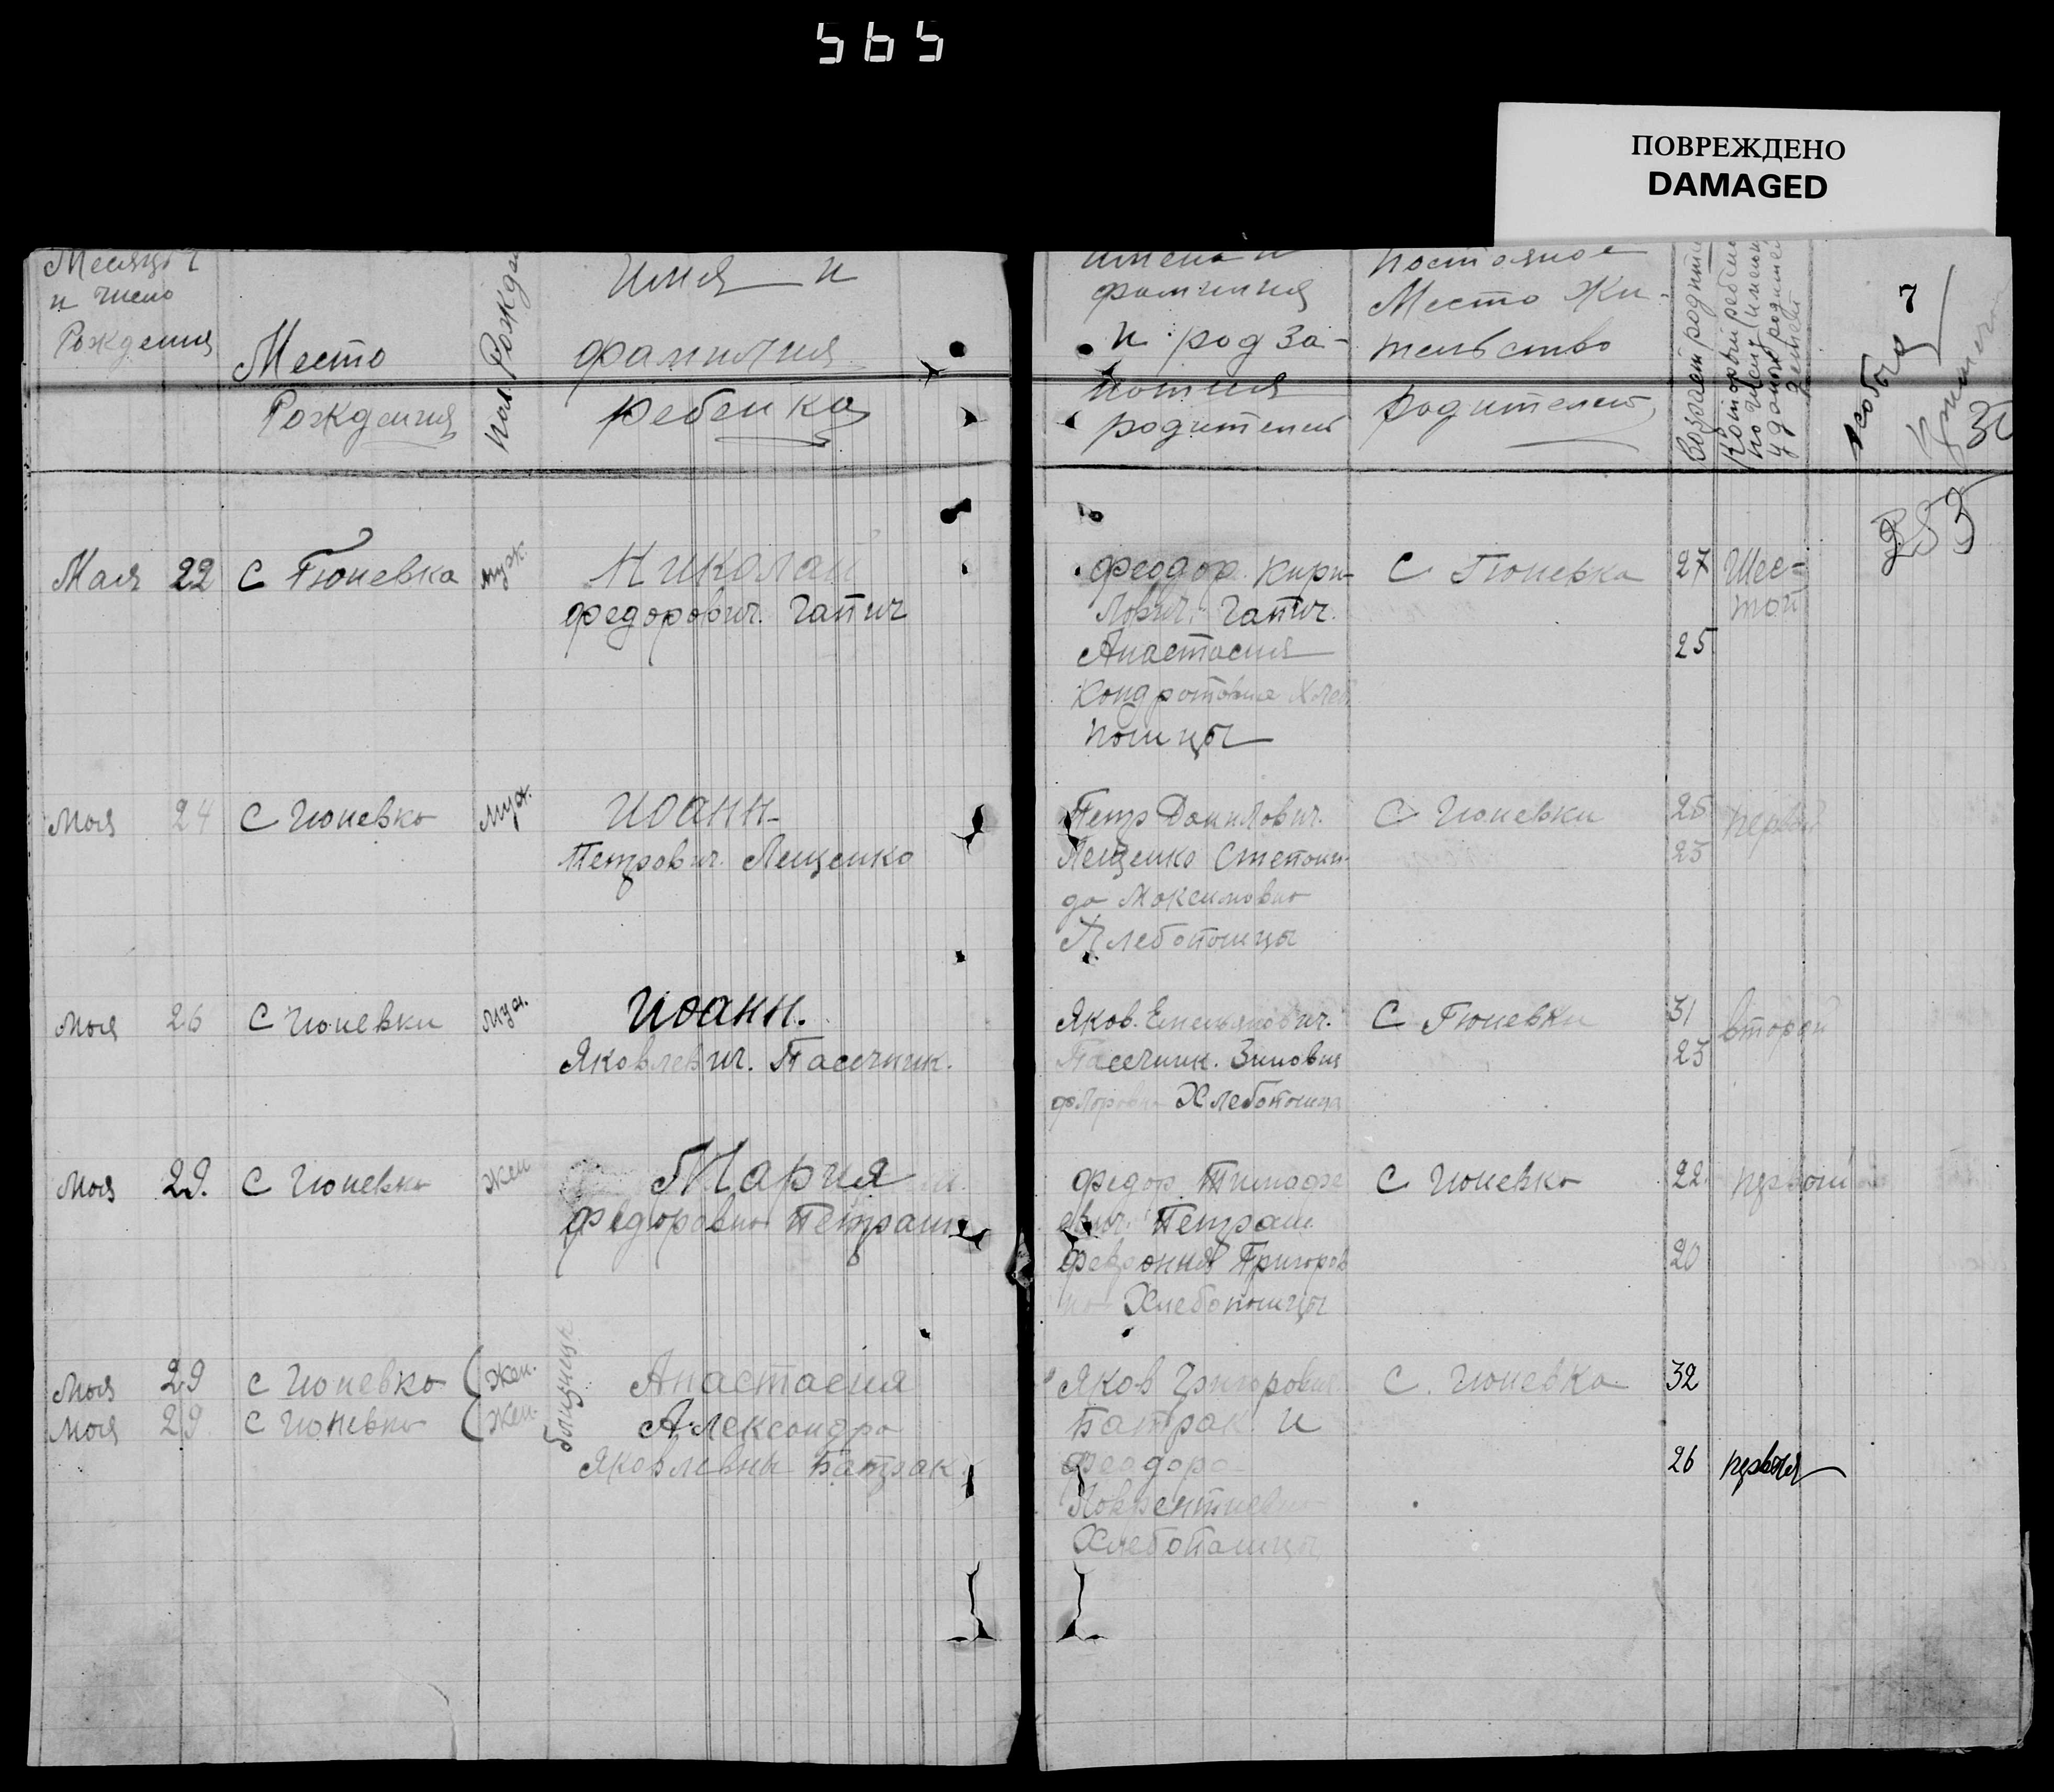 565
ПОВРЕЖДЕНО
DAMAGED
7
Месяц
и число
Рождения
Место
Рождения
Пол Рожден
Имя и
фамилия
ребенка
имена и
фамилия
и род за-
нятия
родителей
постояное
Место Жи-
тельство
родителей
Возраст родите
Который ребенок
по числу
у данных родителей
детей
особыя
253
Мая 22 С Гюневка муж.
Николай
Федорович. Гапич
Феодор Кири-
лович. Гапич.
Анастасия
Кондротовна Хлебо
пошцы
С Гюневка
27
25
Шес-
той
Моя 24 С Гюневко Муж.
Иоанн
Петрович. Лещенко
Петр Данилович.
Лещенко Степони-
да Моксимовно
Хлебопошцы
С Гюневки
26
23
первый
Моя 26 С Гюневки Муж.
Иоанн.
Яковлевич. Пасечник.
Яков. Емельянович.
Пасечник. Зиновия
Флоровно Хлебопошцы
С Гюневки
31
23
второй
Моя 29. С Гюневко Жен
Мария
Федоровно Петраш
Федор Тимофе
евич. Петраш
Феврония Григоров
но Хлебопошцы
С Гюневко
22
20
первой
Моя 29 С Гюневко Жен.
Моя 29 С Гюневко Жен.
близнецы
Анастасия
Александро
Яковлевны Батрак
Яков Григорович
Батрак и
Феодора
Ловрентиевно
Хлебопашцы
С. Гюневка
32
26
первыя